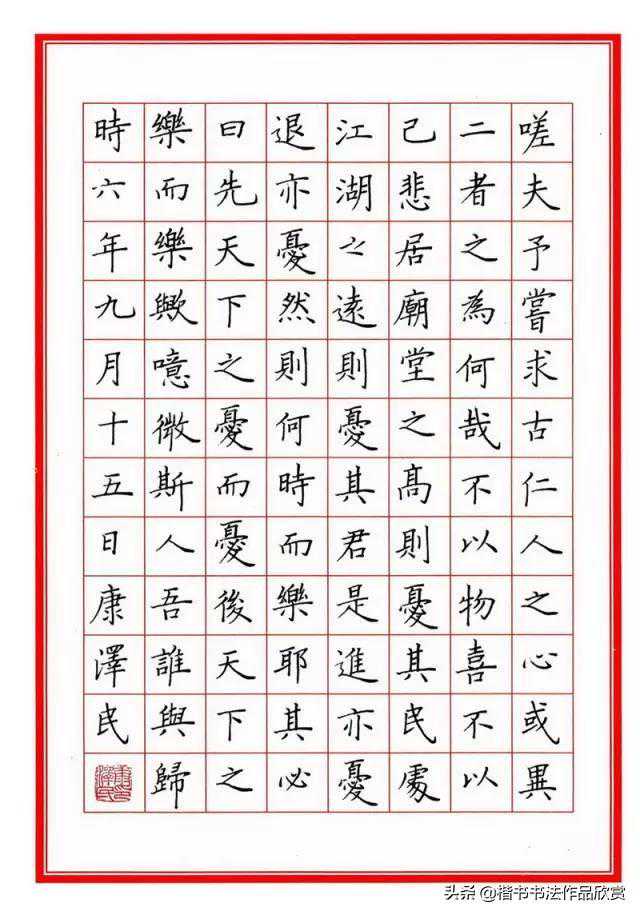 嗟夫予嘗求古仁人之心或異
二者之為何哉不以物喜不以
己悲居廟堂之高則憂其民處
江湖之遠則憂其君是進亦憂
退亦憂然則何時而樂耶其必
曰先天下之憂而憂後天下之
樂而樂歟噫微斯人吾誰與歸
時六年九月十五日康澤民
头条@楷书书法作品欣赏